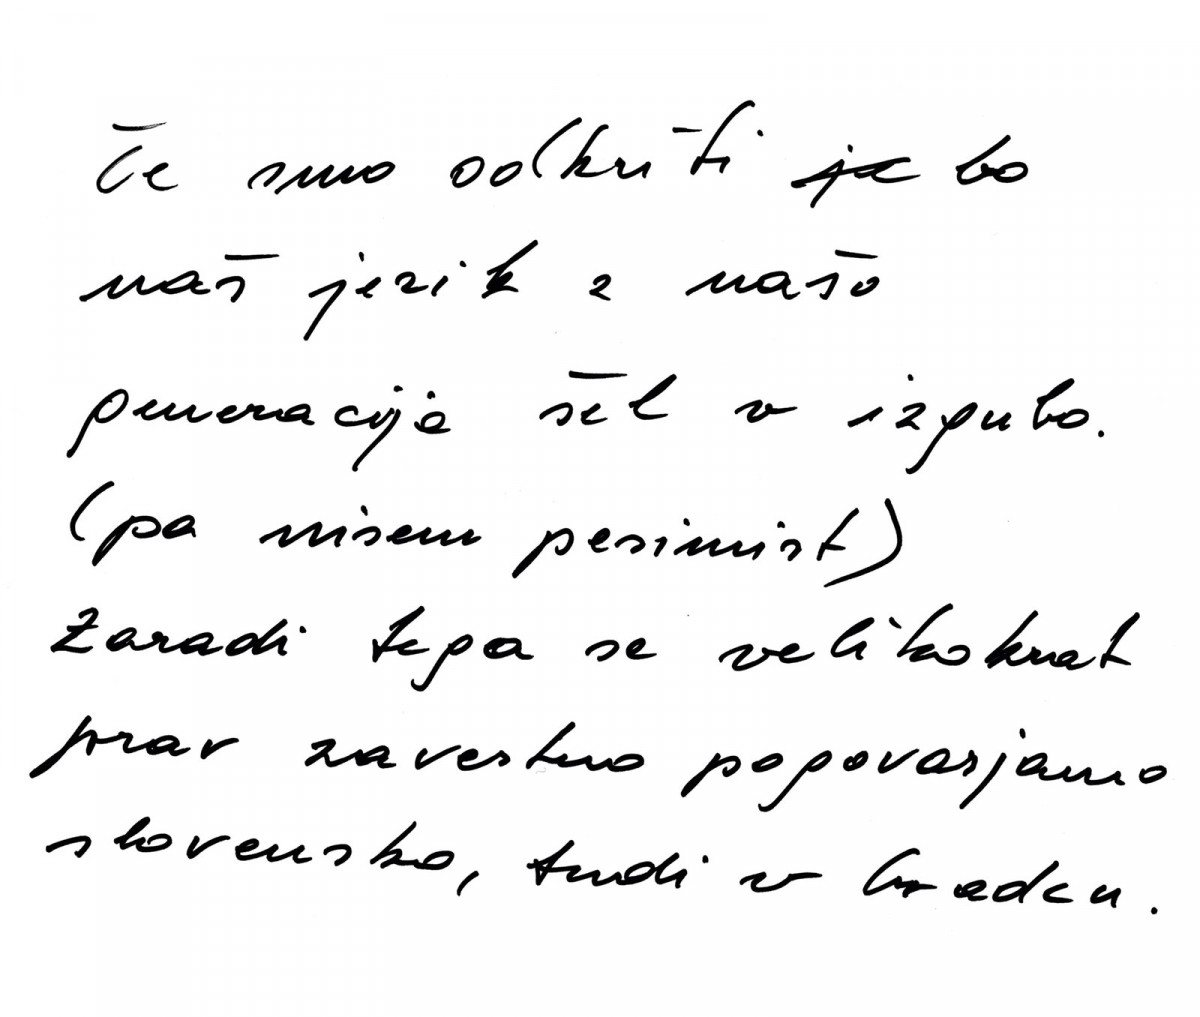 Če smo odkriti je bo
naš jezik z našo
generacijo šel v izgubo.
(pa nisem pesimist)
Zaradi tega se velikokrat
prav zavestno pogovarjamo
slovensko, tudi v Gradcu.